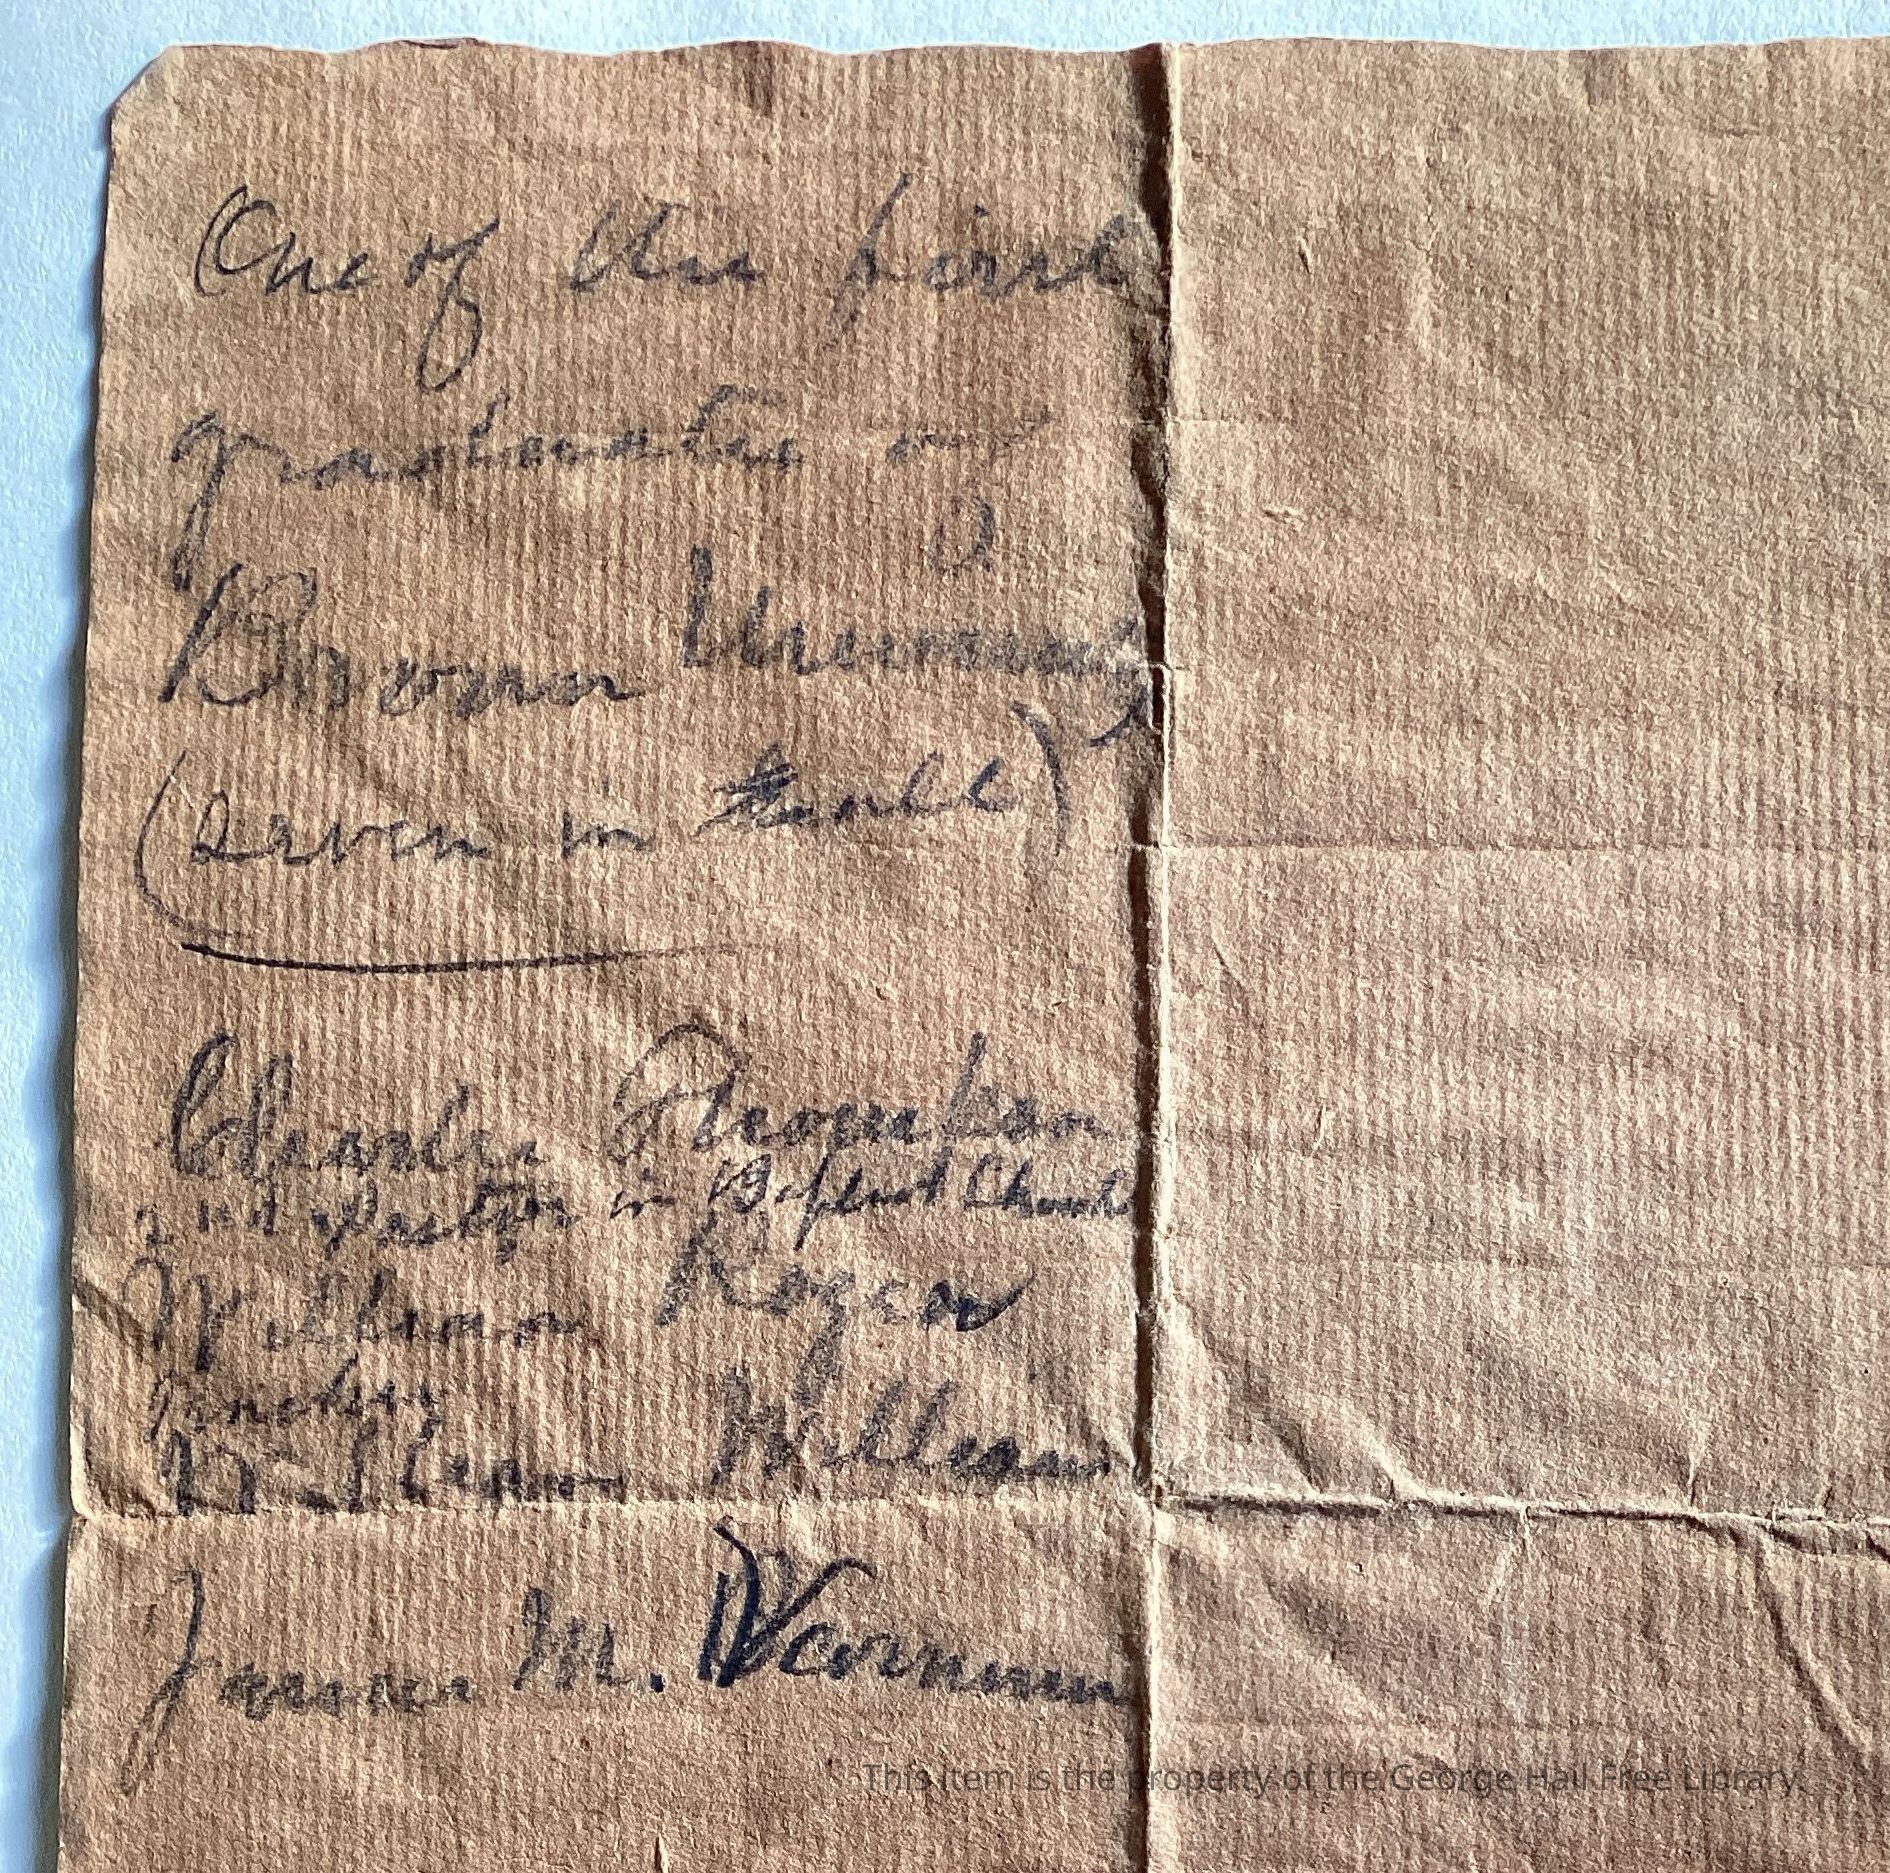 One of the first
graduates of
Brown University
(seven in all)
Charles Thompson
2nd Pastor in Baptist Church
William Rogers
William Williams
James M. Varnum
This item is the property of the George Hail Free Library.